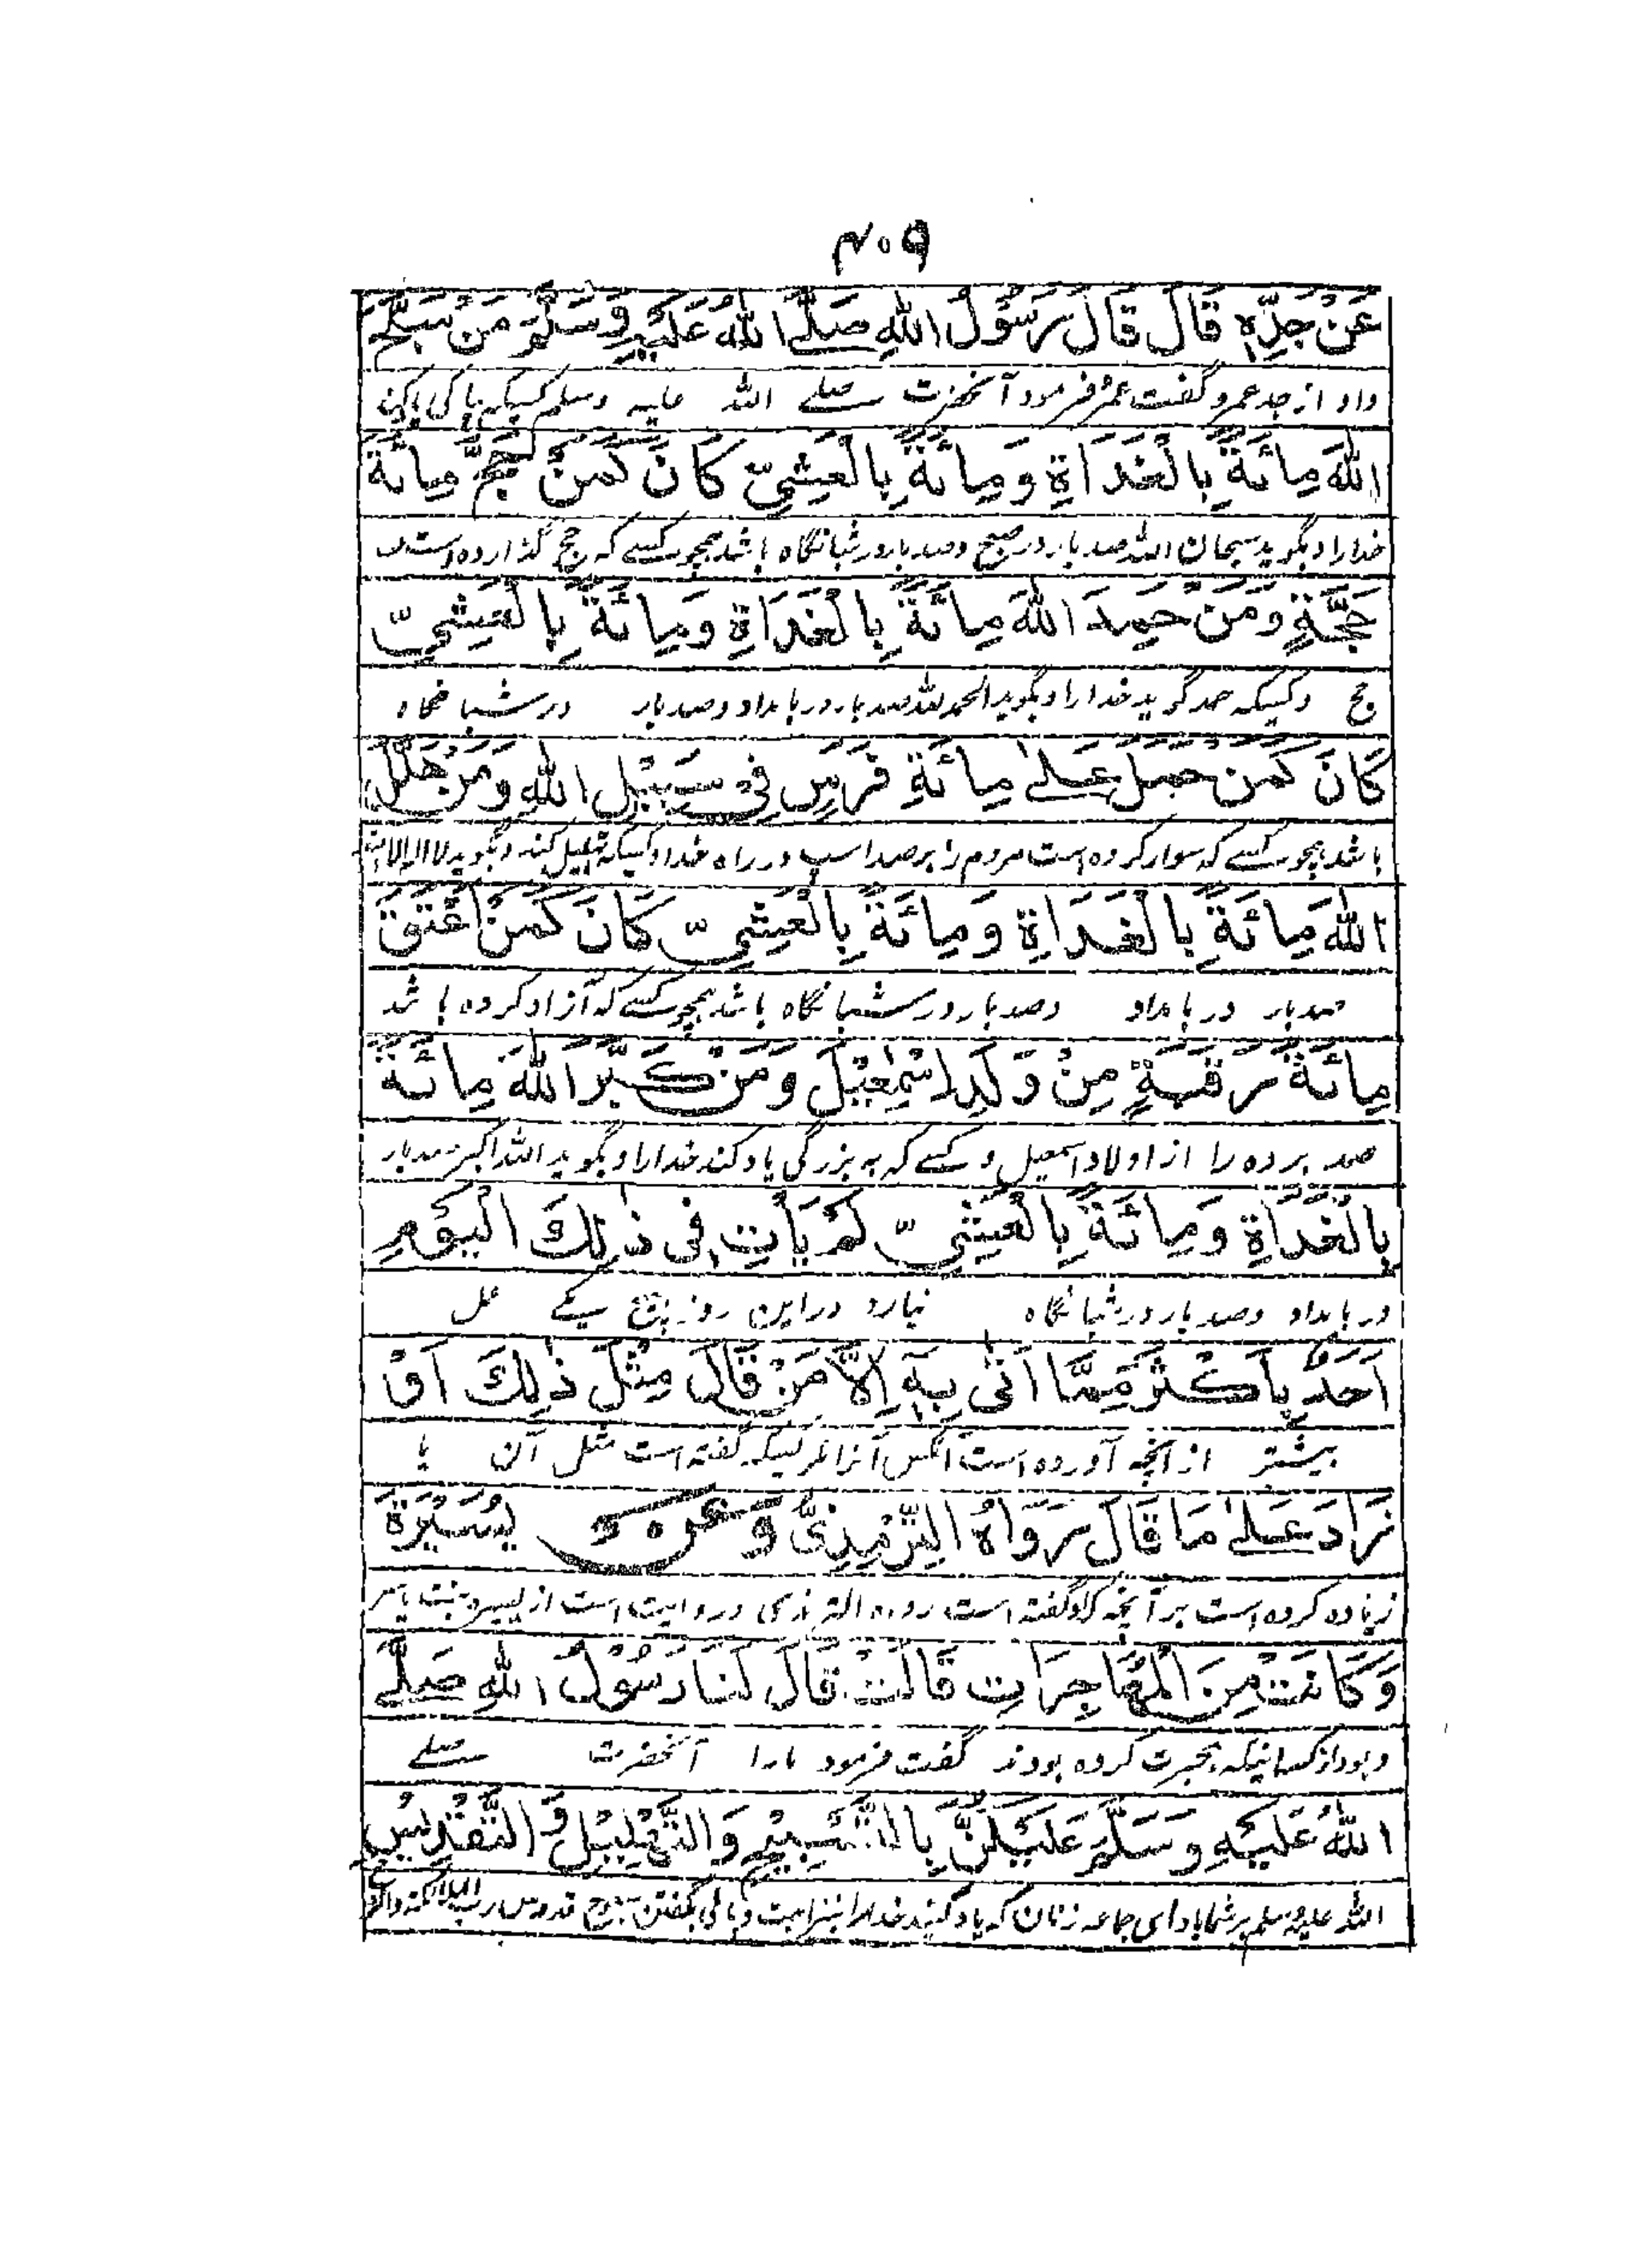 ۴۰۹
عَنْ جَدِّهٖ قَالَ قَالَ رَسُوْلُ اللهِ صَلَّے اللهُ عَلَيْهِ وَسَلَّمَ مَنْ سَبَّحَ
داو از جد عمرو گفت عمر فرمود آنحضرت صلے الله علیه وسلم کسیکه پاکی یاکن
اللهَ مِائَةً بِالْغَدَاةِ وَمِائَةً بِالْعَشِيِّ كَانَ كَمَنْ حَجَّ مِائَةَ
خدارا و بگوید سبحان الله صد بار در صبح وصد بار در شبانگاه باشد همچو کسے که حج گذارده است
حَجَّةٍ وَمَنْ حَمِدَ اللهَ مِائَةً بِالْغَدَاةِ وَمِائَةً بِالْعَشِيِّ
حج وکسیکه حمد گوید خدارا و بگوید الحمد لله صد بار در بامداد وصد بار در شبانگاه
كَانَ كَمَنْ حَمَلَ عَلٰے مِائَةِ فَرَسٍ فِيْ سَبِيْلِ اللهِ وَمَنْ هَلَّلَ
باشد همچو کسے که سوار کرده است مردم را بر صد اسپ در راه خدا و کسیکه تهلیل کند و بگوید لا اله الا الله
اللهَ مِائَةً بِالْغَدَاةِ وَمِائَةً بِالْعَشِيِّ كَانَ كَمَنْ اَعْتَقَ
صد بار در بامداد وصد بار در شبانگاه باشد همچو کسے که آزاد کرده باشد
مِائَةَ رَقَبَةٍ مِنْ وَّلَدِ اسْمٰعِيْلَ وَمَنْ كَبَّرَ اللهَ مِائَةً
صد برده را از اولاد اسمعیل و کسے که به بزرگی یاد کند خدارا و بگوید الله اکبر صد بار
بِالْغَدَاةِ وَمِائَةً بِالْعَشِيِّ لَمْ يَأْتِ فِيْ ذٰلِكَ الْيَوْمِ
در بامداد وصد بار در شبانگاه نیارد در این روز هیچ یکے عمل
اَحَدٌ بِاَكْثَرَ مِمَّا اَتٰى بِهٖ اِلَّا مَنْ قَالَ مِثْلَ ذٰلِكَ اَوْ
بیشتر از آنچه آورده است آنکس آنرا مگر کسیکه گفته است مثل آن یا
زَادَ عَلٰے مَا قَالَ رَوَاهُ التِّرْمِذِيُّ وَعَنْ يُسَيْرَةَ
زیاده کرده است بر آنچه که او گفته است رواه الترمذی و روایت است از یسیره بنت یاسر
وَكَانَتْ مِنَ الْمُهَاجِرَاتِ قَالَتْ قَالَ لَنَا رَسُوْلُ اللهِ صَلَّے
و بود از کسانیکه هجرت کرده بودند گفت فرمود مارا آنحضرت صلے
اللهُ عَلَيْهِ وَسَلَّمَ عَلَيْكُنَّ بِالتَّسْبِيْحِ وَالتَّهْلِيْلِ وَالتَّقْدِيْسِ
الله علیه وسلم بر شما باد ای جماعه زنان که یاد کنید خدا را بنزاهت و پاکی بگفتن سبوح قدوس رب الملائکة